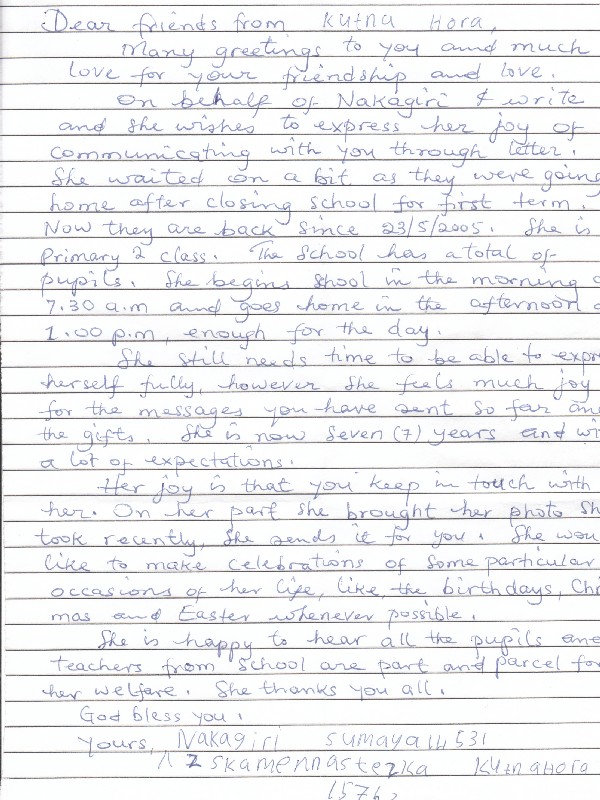 Dear friends from Kutna Hora,
Many greetings to you and much
love for your friendship and love.
On behalf of Nakagiri I write
and she wishes to express her joy of
communicating with you through letter.
She waited on a bit as they were going
home after closing school for first term.
Now they are back since 23/5/2005. She is
Primary 2 class. The School has a total of
pupils. She begins shool in the morning
7.30 a.m and goes home in the afternoon
1.00 p.m, enough for the day.
She still needs time to be able to expr
herself fully, however she feels much joy
for the messages you have sent so far an
the gifts. She is now seven (7) years and wi
a lot of expectations.
Her joy is that you keep in touch with
her. On her part she brought her photo sh
took recently, She sends it for you. She wou
like to make celebrations of some particular
occasions of her life, like, the birthdays, Chr
mas and Easter whenever possible.
She is happy to hear all the pupils and
teachers from school are part and parcel for
her welfare. She thanks you all.
God bless you.
Yours, Nakagiri sumaya 14531
Kutna Hora